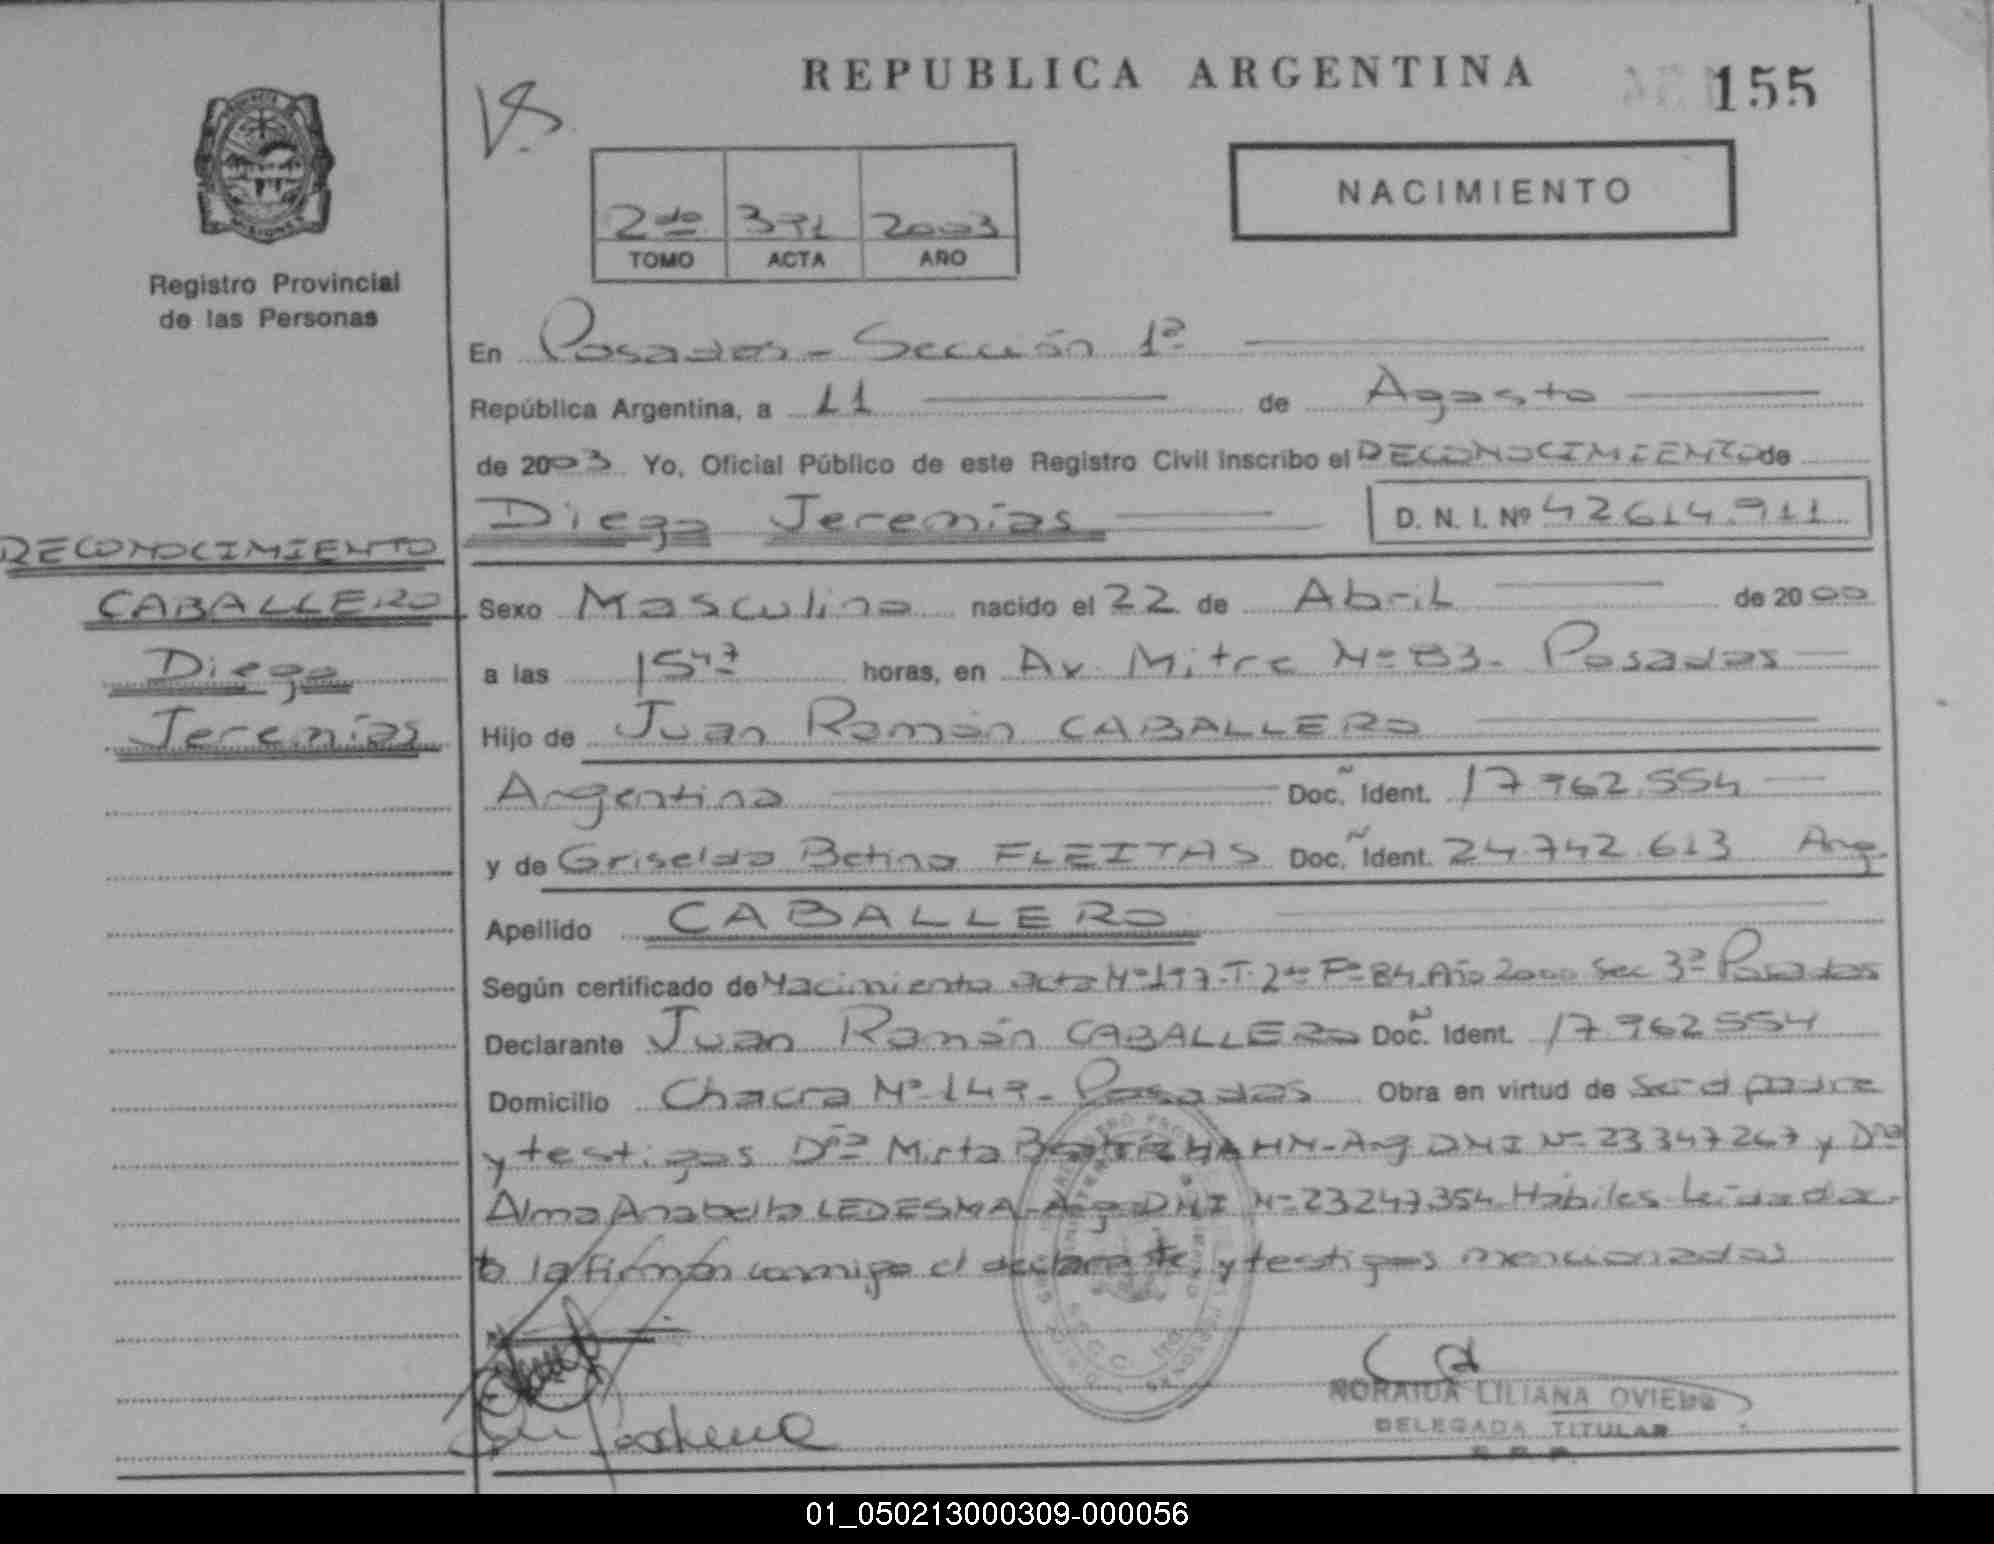 REPUBLICA ARGENTINA
155
NACIMIENTO
2do 371 2003
TOMO ACTA AÑO
Registro Provincial
de las Personas
En Posadas - Sección 1ª
República Argentina, a 11 de Agosto
de 2003 Yo, Oficial Público de este Registro Civil inscribo el RECONOCIMIENTO de
Diego Jeremías D. N. I. Nº 42614.911
RECONOCIMIENTO
CABALLERO
Diego
Jeremías
Sexo Masculino nacido el 22 de Abril de 2000
a las 15 47 horas, en Av. Mitre Nº 83 - Posadas
Hijo de Juan Ramón CABALLERO
Argentina Doc. Ident. 17.962.554
y de Griselda Betina FLEITAS Doc. Ident. 24.742.613 Arg.
Apellido CABALLERO
Según certificado de Nacimiento Acta Nº 197-T. 2do Fº 84. Año 2000 Sec 3ª Posadas
Declarante Juan Ramón CABALLERO Doc. Ident. 17.962554
Domicilio Chacra Nº 149 - Posadas Obra en virtud de ser el padre
y testigos Dña Mirta Beatriz HAHN - Arg DNI Nº 23347267 y Dña
Alma Anabella LEDESMA - Arg DNI Nº 23247.354 Hábiles Leída el ac-
ta la firman conmigo el declarante y testigos mencionados
NORAIDA LILIANA OVIEDO
DELEGADA TITULAR
R.R.P.
01_050213000309-000056